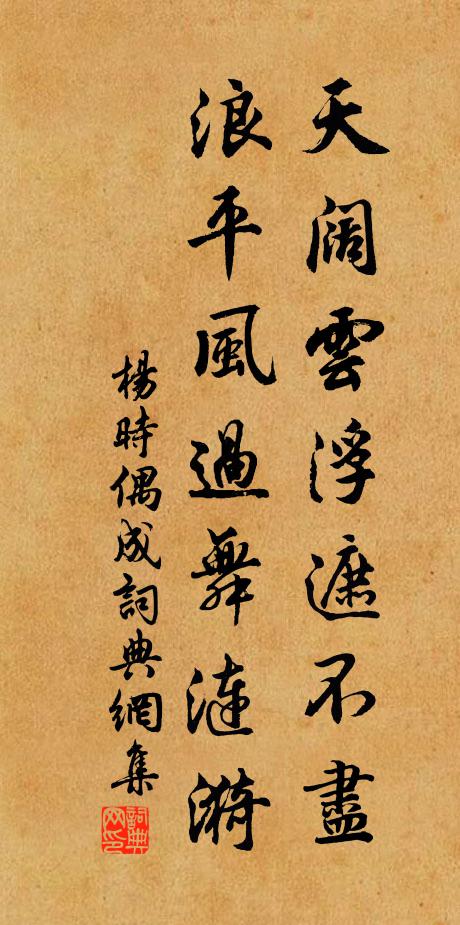 天闊雲浮遮不盡
浪平風過舞漣漪
楊時偶成詞典網集
詞典網印